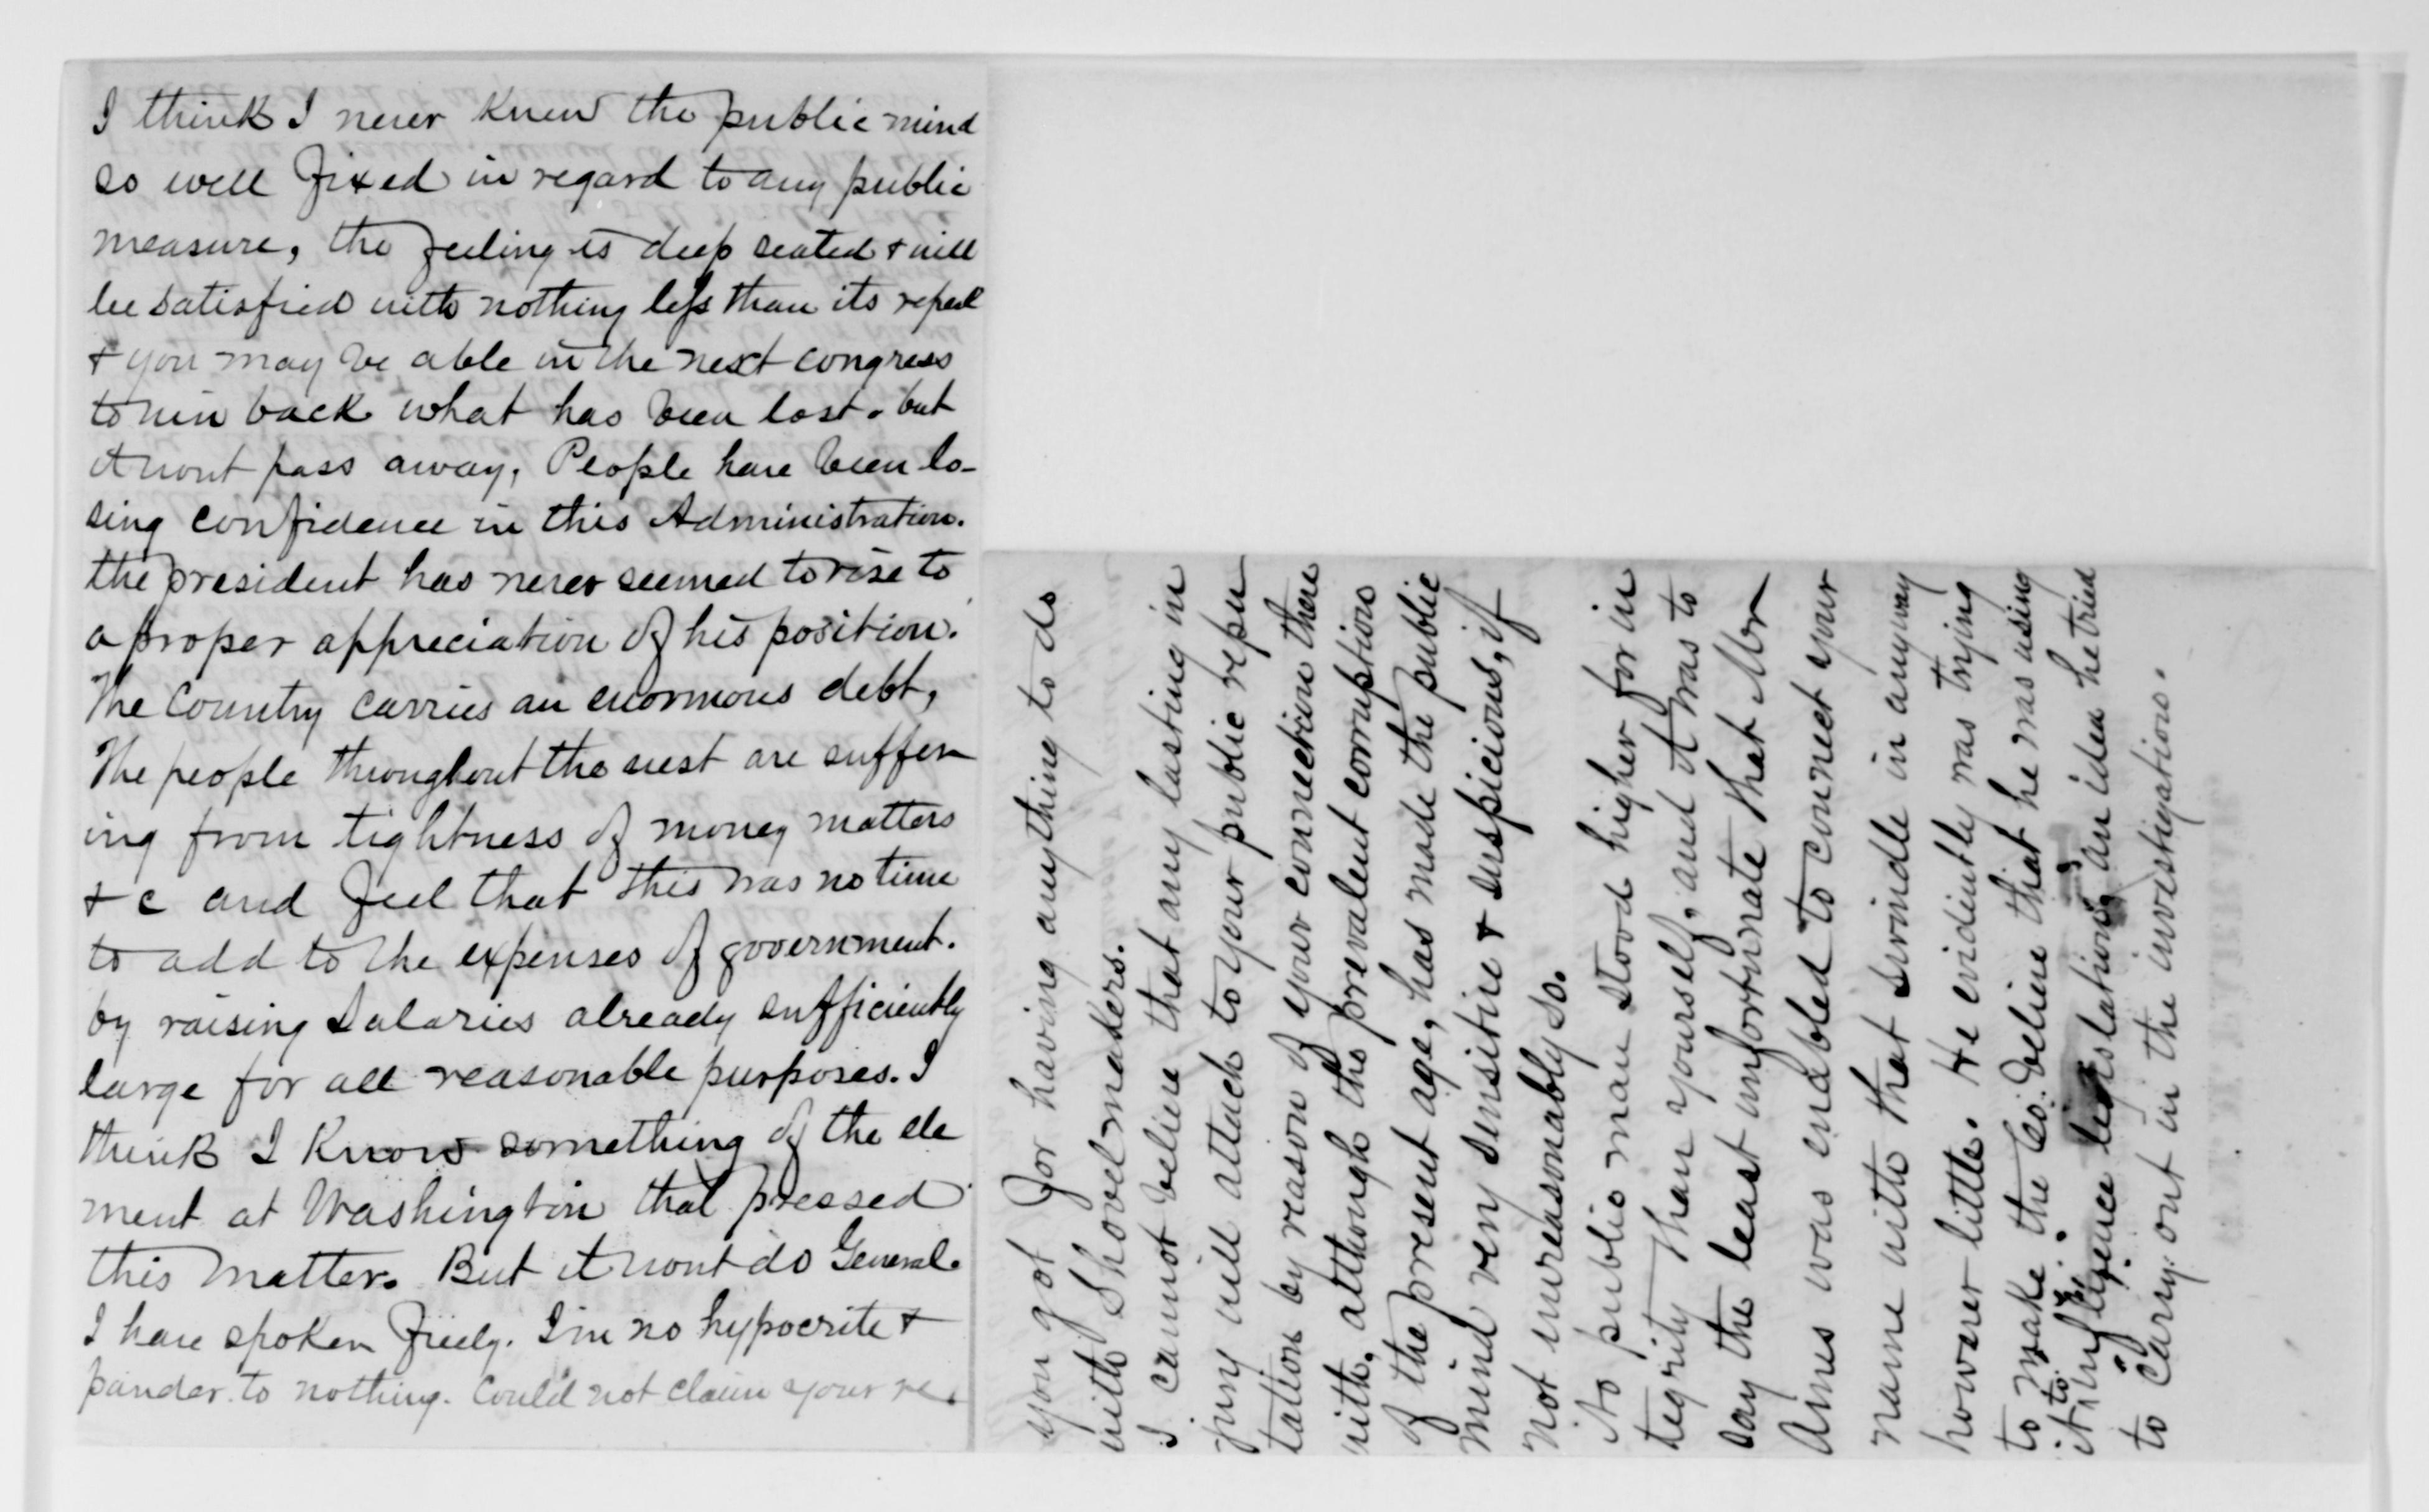 I think I never knew the public mind
so well fixed in regard to any public
measure, the feeling is deep seated & will
be satisfied with nothing less than its repeal
& you may be able in the next congress
to win back what has been lost. but
it wont pass away, People have been lo-
sing confidence in this Administration.
the president has never seemed to rise to
a proper appreciation of his position.
The Country carries an enormous debt,
The people throughout the west are suffer
ing from tightness of money matters
& c and feel that this was no time
to add to the expenses of government.
by raising salaries already sufficiently
large for all reasonable purposes. I
think I know something of the ele
ment at Washington that pressed
this matter. But it wont do General.
I have spoken freely. I'm no hypocrite &
pander to nothing. Could not claim your re.
you got for having anything to do
with Shovelmakers.
I cannot believe that any lasting in
jury will attach to your public repu
tation by reason of your connection there
with, although the prevalent corruptions
of the present age, has made the public
mind very sensitive & suspicious, if
not unreasonably so.
No public man stood higher for in
tegrity than yourself, and it was to
say the least unfortunate that Mr
Ames was enabled to connect your
name with that swindle in anyway
however little. He evidently was trying
to make the Co. believe that he was using
it to influence legislation, an idea he tried
to carry out in the investigation.